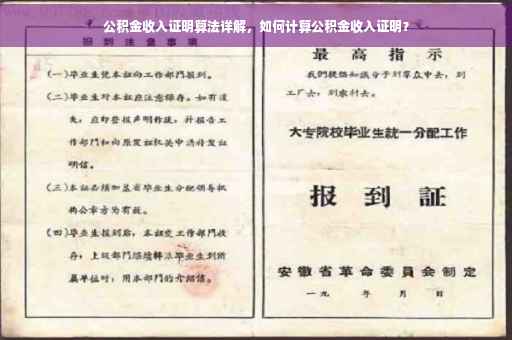 公积金收入证明算法详解，如何计算公积金收入证明？
报到注意事项
(一)毕业生凭本证向工作部门报到。
(二)毕业生对本证应注意保存。如有遗
失，应即登报声明作废，并报告工
作部门和向原发证机关申请补发证
明信。
(三)本证必须加盖省毕业生分配领导机
构公章方为有效。
(四)毕业生报到后，本证交工作部门收
存；上级部门继续转派毕业生到所
属单位时，用本部门的介绍信。
最高指示
我们提倡知识分子到群众中去，到
工厂去，到农村去。
大专院校毕业生统一分配工作
报到证
安徽省革命委员会制定
一九 年 月 日